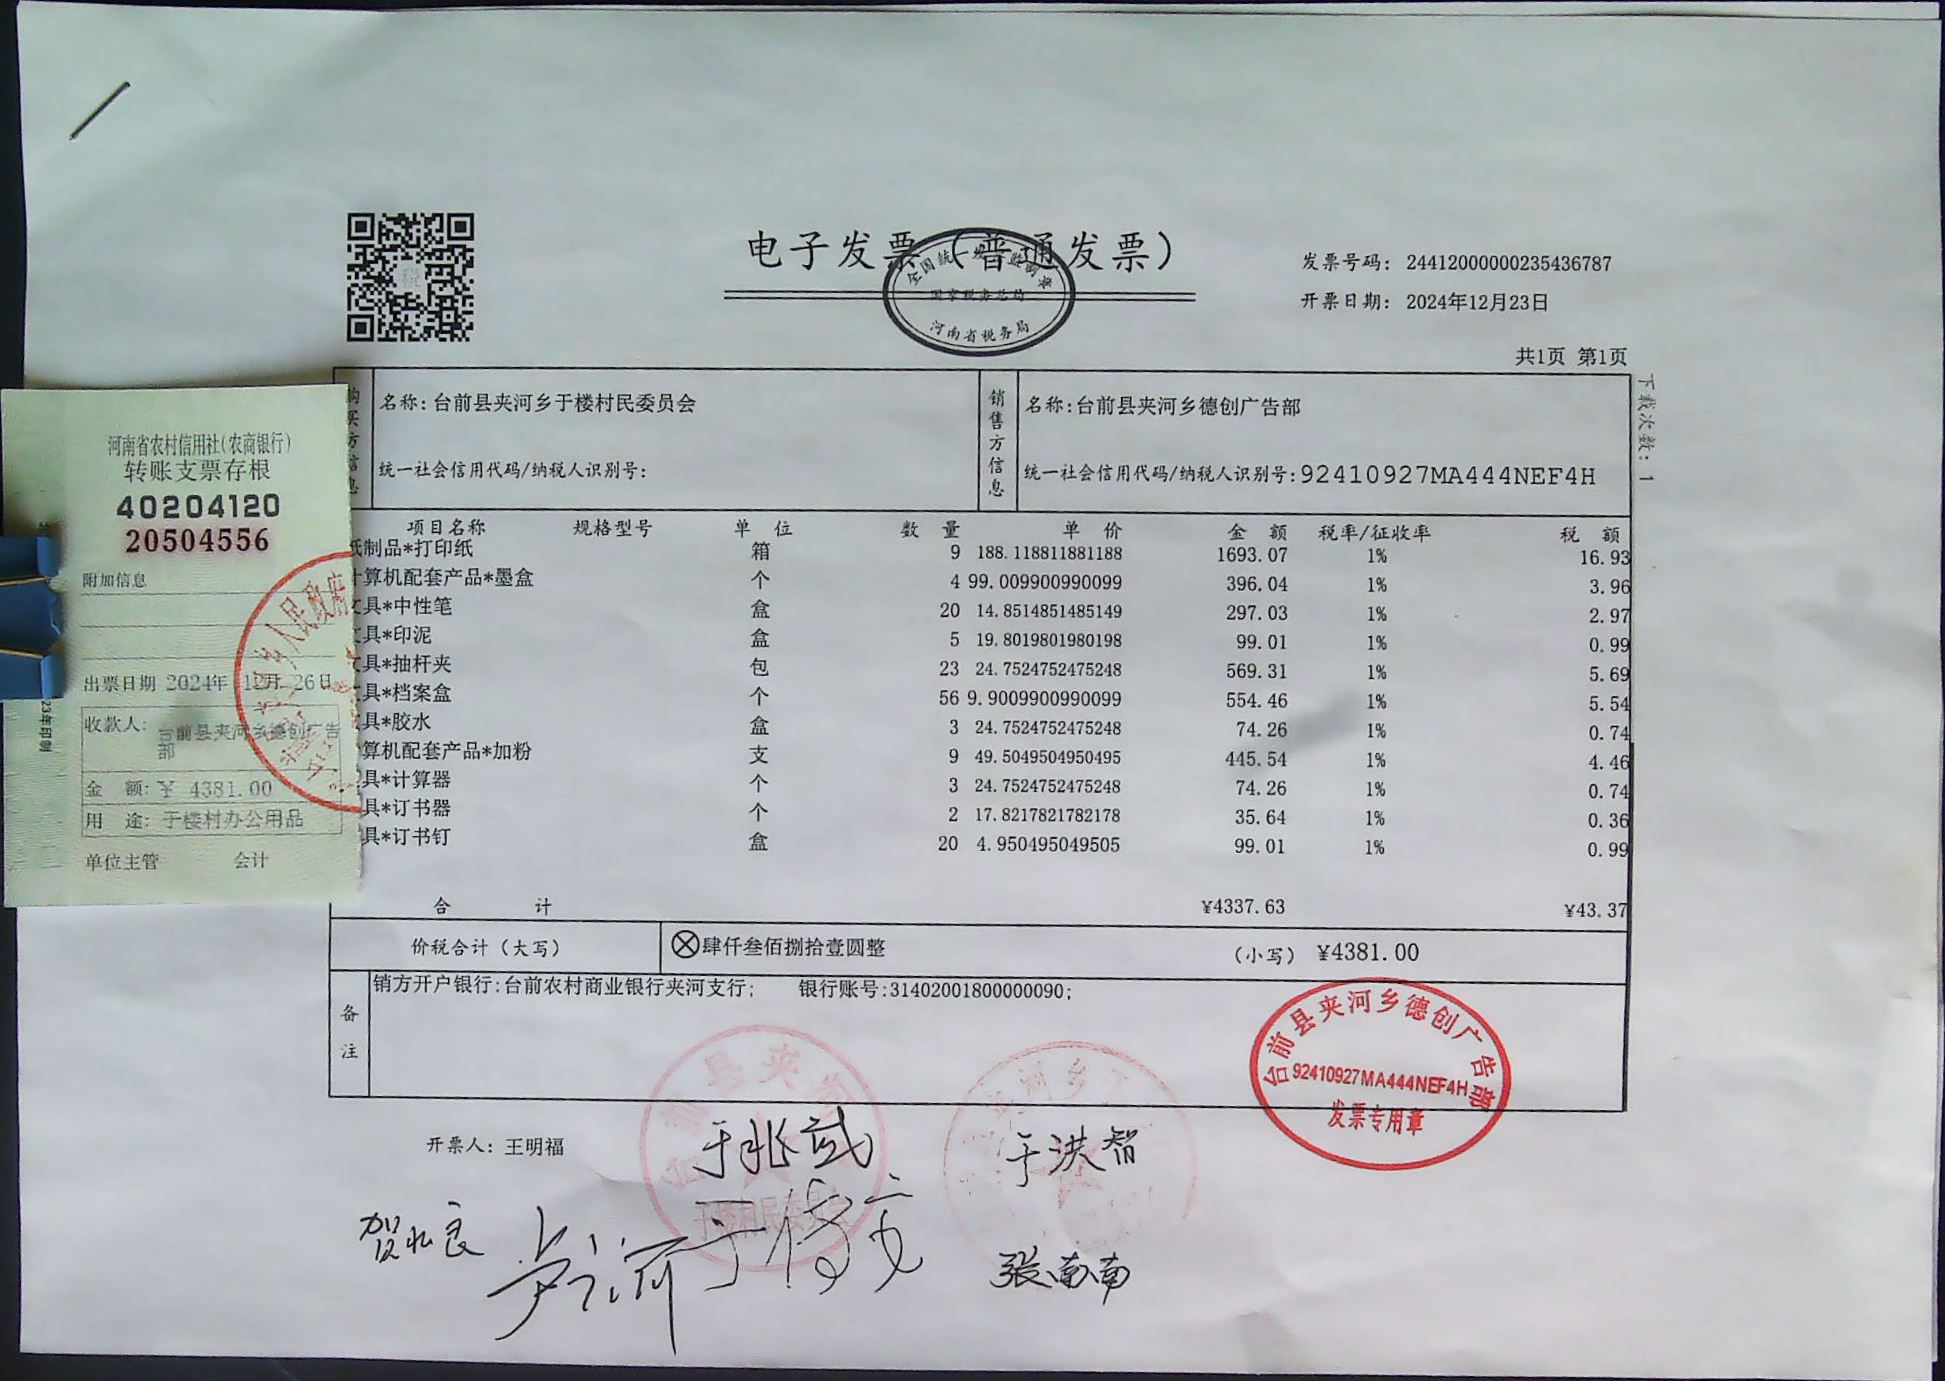 电子发票（普通发票）
全国统一发票监制章
国家税务总局
河南省税务局
发票号码：24412000000235436787
开票日期：2024年12月23日
共1页 第1页
下载次数：1
购买方信息
名称：台前县夹河乡于楼村民委员会
统一社会信用代码/纳税人识别号：
销售方信息
名称：台前县夹河乡德创广告部
统一社会信用代码/纳税人识别号：92410927MA444NEF4H
项目名称 规格型号 单位 数量 单价 金额 税率/征收率 税额
纸制品*打印纸 箱 9 188.118811881188 1693.07 1% 16.93
计算机配套产品*墨盒 个 4 99.009900990099 396.04 1% 3.96
文具*中性笔 盒 20 14.8514851485149 297.03 1% 2.97
文具*印泥 盒 5 19.8019801980198 99.01 1% 0.99
文具*抽杆夹 包 23 24.7524752475248 569.31 1% 5.69
文具*档案盒 个 56 9.9009900990099 554.46 1% 5.54
具*胶水 盒 3 24.7524752475248 74.26 1% 0.74
算机配套产品*加粉 支 9 49.5049504950495 445.54 1% 4.46
具*计算器 个 3 24.7524752475248 74.26 1% 0.74
具*订书器 个 2 17.8217821782178 35.64 1% 0.36
具*订书钉 盒 20 4.950495049505 99.01 1% 0.99
合计 ¥4337.63 ¥43.37
价税合计（大写） ⊗肆仟叁佰捌拾壹圆整 （小写） ¥4381.00
备注
销方开户银行：台前农村商业银行夹河支行； 银行账号：31402001800000090；
台前县夹河乡德创广告部
92410927MA444NEF4H
发票专用章
开票人：王明福
于兆武
于洪智
张南南
河南省农村信用社（农商银行）
转账支票存根
40204120
20504556
附加信息
出票日期 2024年 12月 26日
收款人：台前县夹河乡德创广告部
金额：¥ 4381.00
用途：于楼村办公用品
单位主管 会计
人民政府